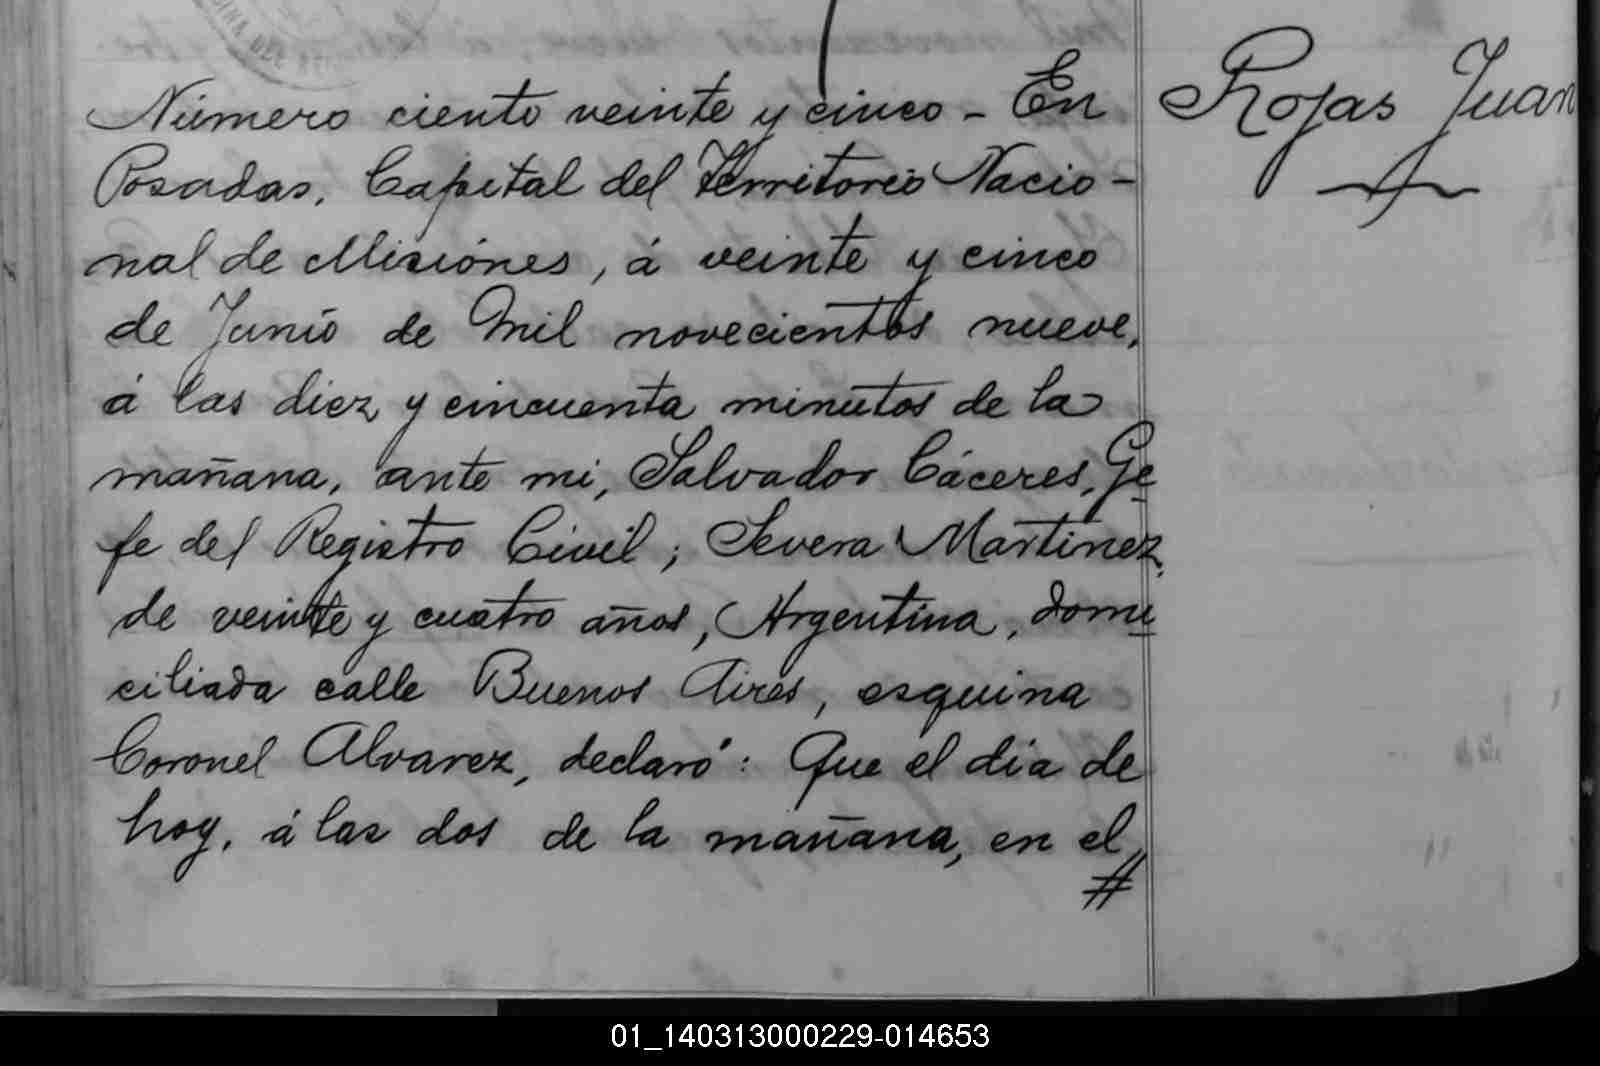 Número ciento veinte y cinco - En
Rojas Juan
Posadas, Capital del Territorio Nacio-
nal de Misiónes, á veinte y cinco
de Junio de Mil novecientos nueve,
á las diez y cincuenta minutos de la
mañana, ante mi, Salvador Cáceres, Ge
fe del Registro Civil; Severa Martinez,
de veinte y cuatro años, Argentina, domi
ciliada calle Buenos Aires, esquina
Coronel Alvarez, declaró: Que el dia de
hoy, á las dos de la mañana, en el
#
01_140313000229-014653